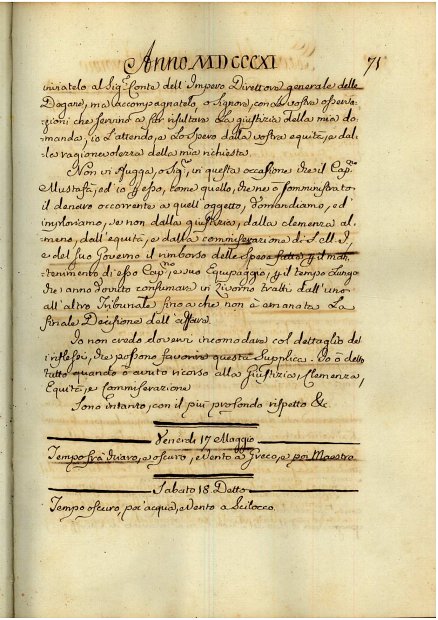 Anno MDCCCXI 71
inviatelo al Sig.r Conte dell'Impero Direttore generale delle
Dogane, ma accompagnatelo, o Signore, con le vostre osserva-
zioni che servino a far risultare la giustizia della mia do-
manda; io l'attendo, e lo spero dalla vostra equità, e dal-
la ragionevolezza della mia richiesta.
Non vi sfugga, o Sig.r, in questa occasione che il Cap.n
Mustafà, ed io p esso, come quello, che ne ò somministrato
il denaro occorrente a quell'oggetto, domandiamo, ed
imploriamo, se non dalla giustizia, dalla clemenza al-
meno, dall'equità, e dalla commiserazione di S. M. I.
e del suo Governo il rimborso delle spese fatte p il man-
tenimento di esso Cap.n e suo Equipaggio, p il tempo lungo
che anno dovuto consumare in Livorno tratti dall'uno
all'altro Tribunale fino a che non è emanata la
finale Decisione dell'affare.
Io non credo dovervi incomodare col dettaglio de'
riflessi, che possono favorire questa supplica. Io ò detto
tutto quando ò avuto ricorso alla Giustizia, Clemenza,
Equità, e Commiserazione
Sono intanto, con il più profondo rispetto &c.
Venerdì 17 Maggio
Tempo frà chiaro, e oscuro, e Vento a Greco, e poi Maestro
Sabato 18. Detto
Tempo oscuro, poi acqua, e Vento a Scilocco.